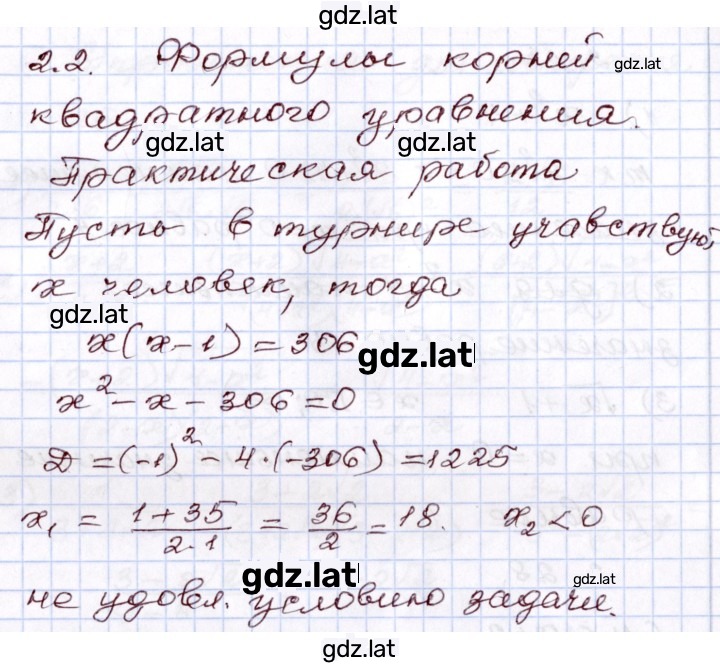 gdz.lat
2.2. Формулы корней gdz.lat
квадратного уравнения.
gdz.lat gdz.lat
Практическая работа
Пусть в турнире учавствуют
x человек, тогда
gdz.lat
x(x-1)=306
gdz.lat
x²-x-306=0
D=(-1)²-4·(-306)=1225
x₁ = (1+35)/(2·1) = 36/2 = 18. x₂<0
gdz.lat gdz.lat
не удовл. условию задачи.
gdz.lat